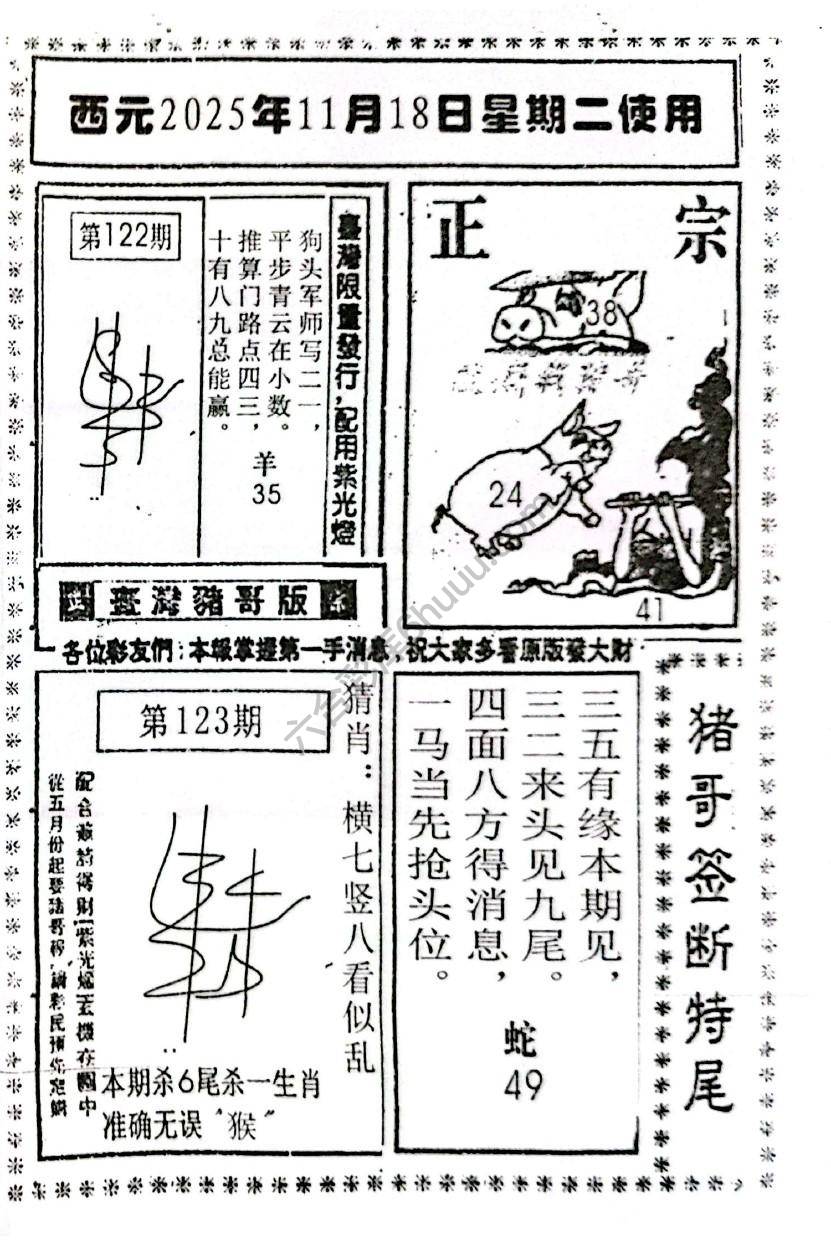 西元2025年11月18日星期二使用
第122期
臺灣限量發行，配用紫光燈
狗头军师写二一，
平步青云在小数。
推算门路点四三，
十有八九总能赢。
羊
35
正宗
38
24
41
臺灣豬哥版
各位彩友們：本報掌握第一手消息，祝大家多看原版發大財
第123期
猜肖：横七竖八看似乱
本期杀6尾杀一生肖
准确无误“猴”
三五有缘本期见，
三二来头见九尾。
四面八方得消息，
一马当先抢头位。
蛇
49
猪哥签断特尾